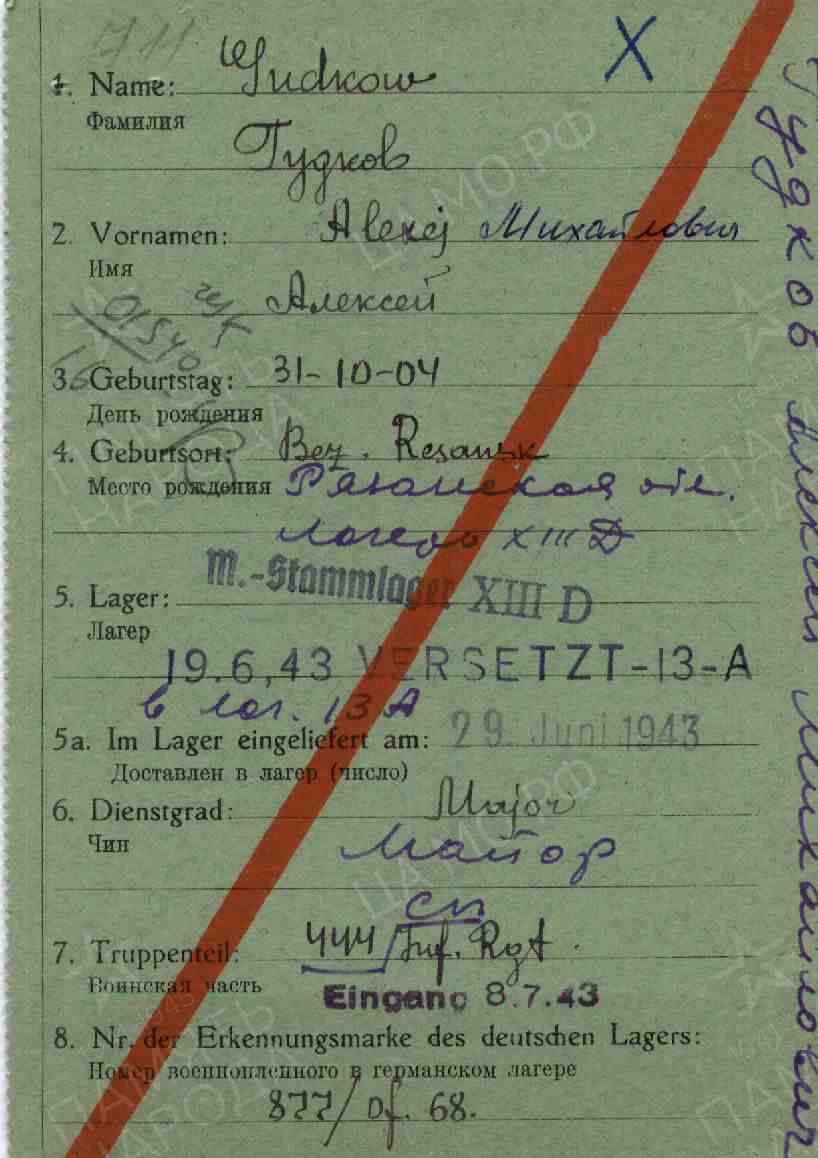 711
X
1. Name: Gudkow
Фамилия
Гудков
2. Vornamen: Alexej Михайлович
Имя
Алексей
3. Geburtstag: 31-10-04
День рождения
4. Geburtsort: Bez. Resansk
Место рождения Рязанская обл.
лагерь XIII D
M.-Stammlager XIII D
5. Lager:
Лагер
19.6,43 VERSETZT-13-A
в лаг. 13 А
5a. Im Lager eingeliefert am: 29. Juni 1943
Доставлен в лагер (число)
6. Dienstgrad: Major
Чин
Майор
сп
7. Truppenteil: 444/Inf. Rgt.
Воинская часть
Eingang 8.7.43
8. Nr. der Erkennungsmarke des deutschen Lagers:
Номер военнопленного в германском лагере
877/Of. 68.
Гудков Алексей Михайлович
ЦАМО РФ
ПАМЯТЬ НАРОДА